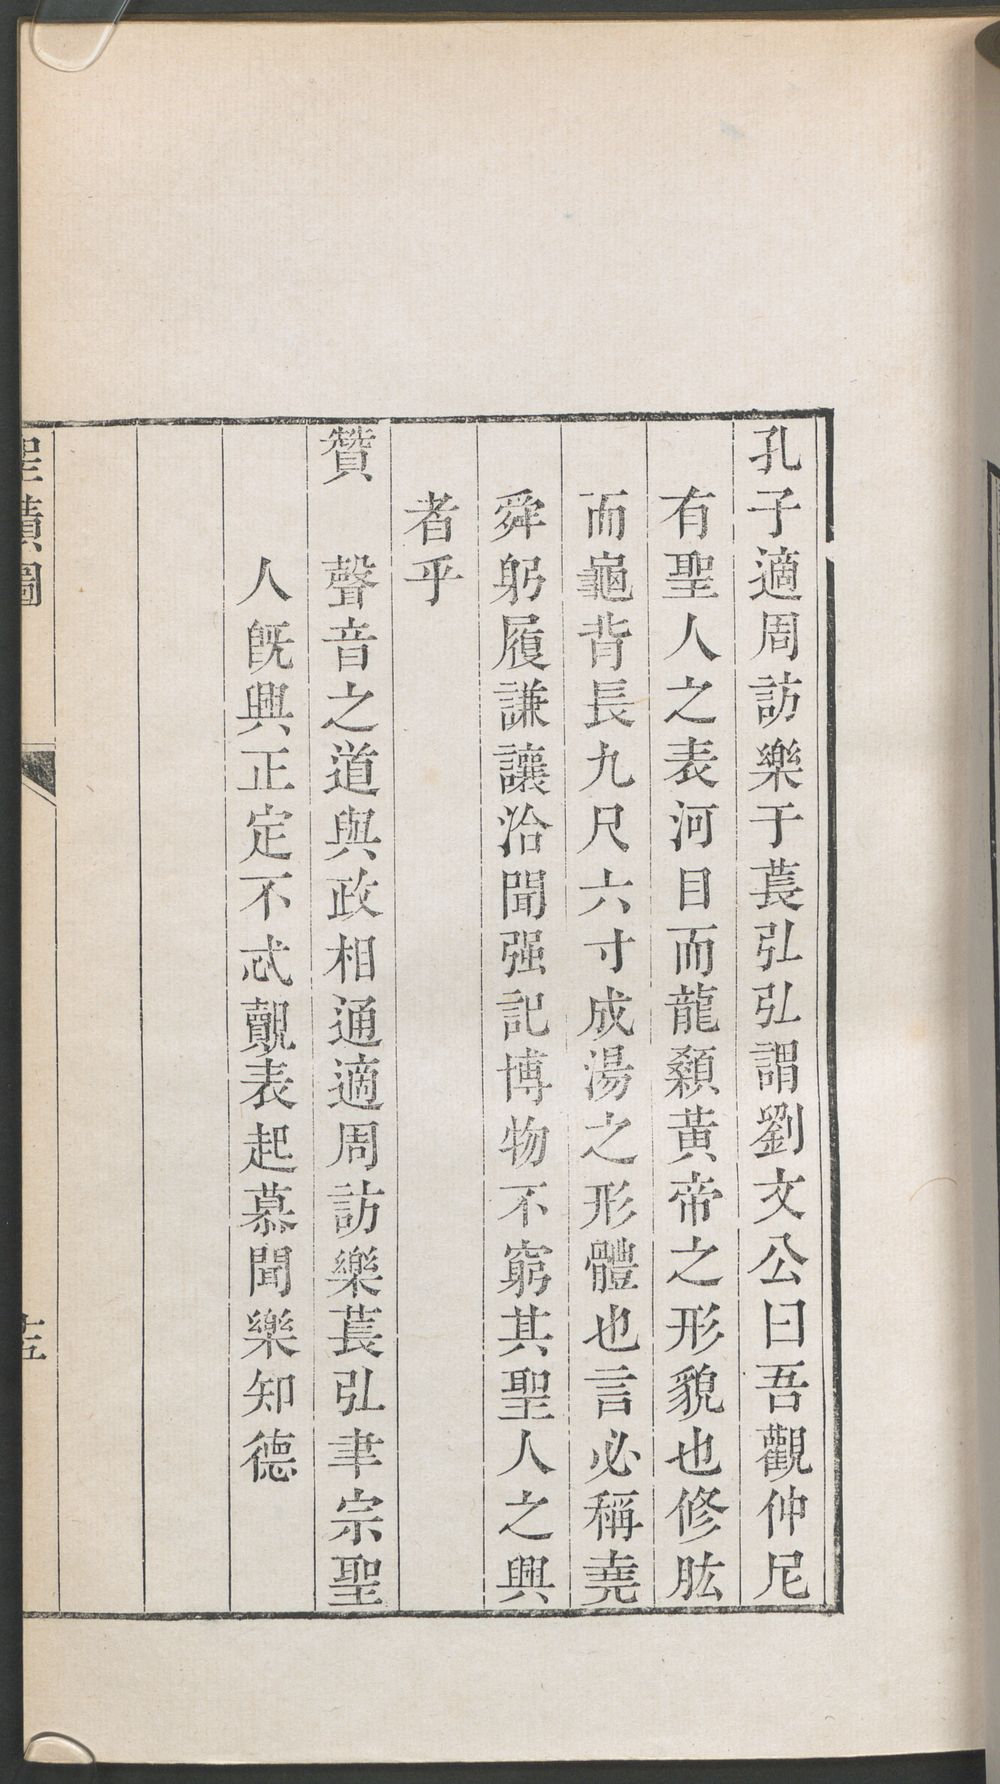 孔子適周訪樂于萇弘弘謂劉文公曰吾觀仲尼
有聖人之表河目而龍顙黃帝之形貌也修肱
而龜背長九尺六寸成湯之形體也言必稱堯
舜躬履謙讓洽聞强記博物不窮其聖人之興
者乎
贊　聲音之道與政相通適周訪樂萇弘聿宗聖
人旣興正定不忒覿表起慕聞樂知德
聖蹟圖
十五